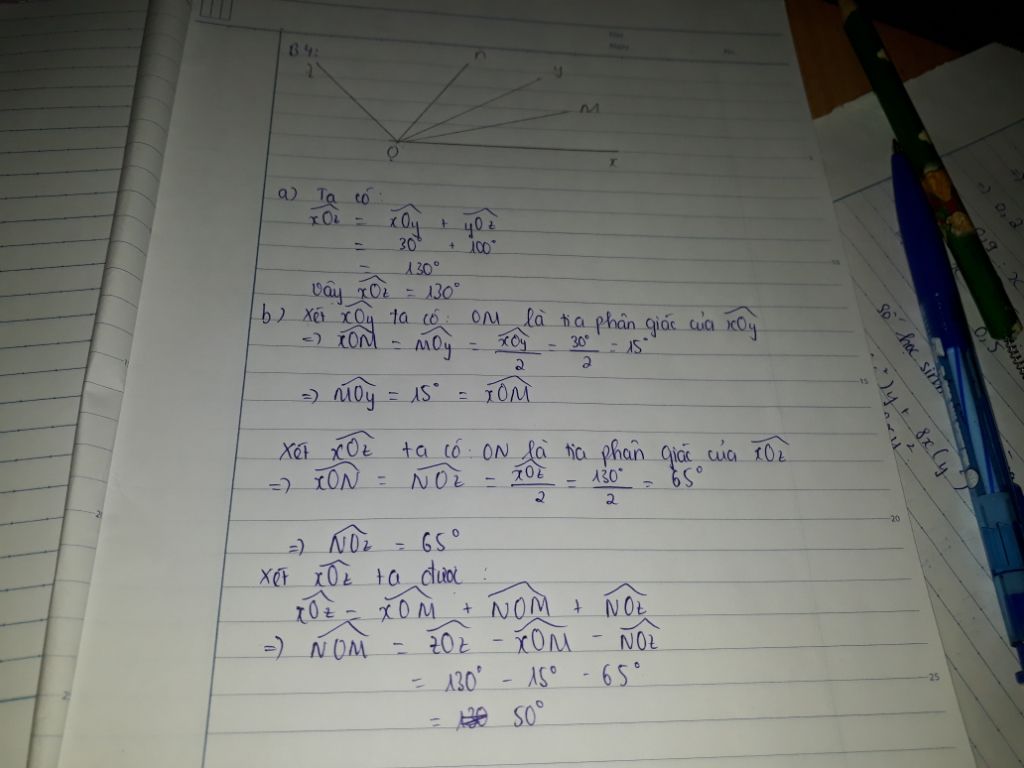 B4:
z
n
y
M
O
x
a) Ta có:
xOz = xOy + yOz
= 30° + 100°
= 130°
Vậy xOz = 130°
b) Xét xOy ta có: OM là tia phân giác của xOy
=> xOM = MOy = xOy/2 = 30°/2 = 15°
=> MOy = 15° = xOM
Xét xOz ta có: ON là tia phân giác của xOz
=> xON = NOz = xOz/2 = 130°/2 = 65°
=> NOz = 65°
Xét xOz ta được:
xOz = xOM + NOM + NOz
=> NOM = zOz - xOM - NOz
= 130° - 15° - 65°
= 50°
10
15
20
25
số học sinh